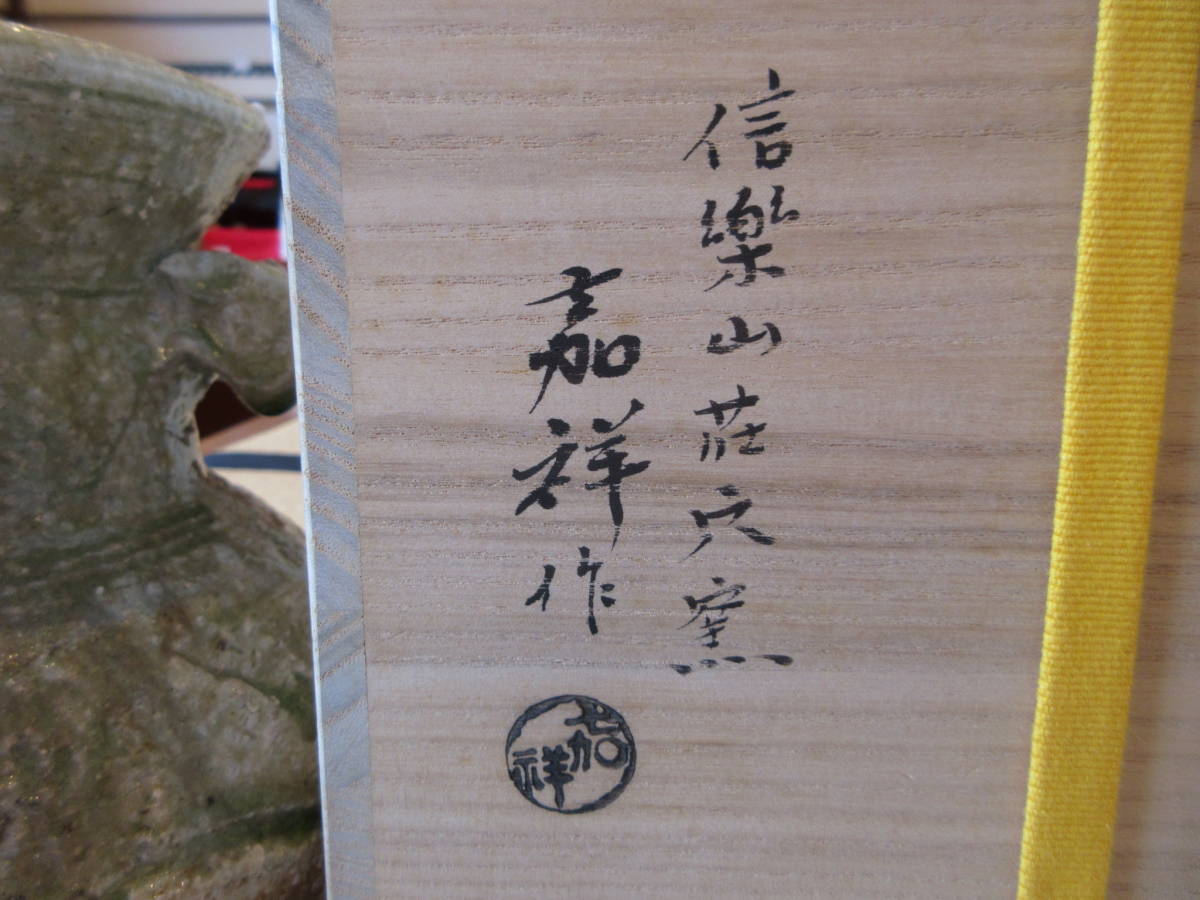 信樂山荘穴窯
嘉祥作
嘉祥